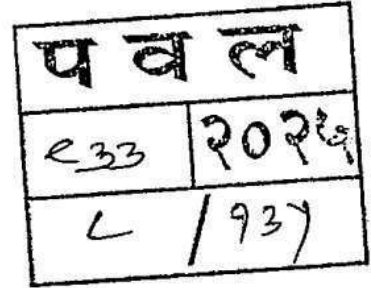 प व ल
९३३ २०२५
८ / १३५